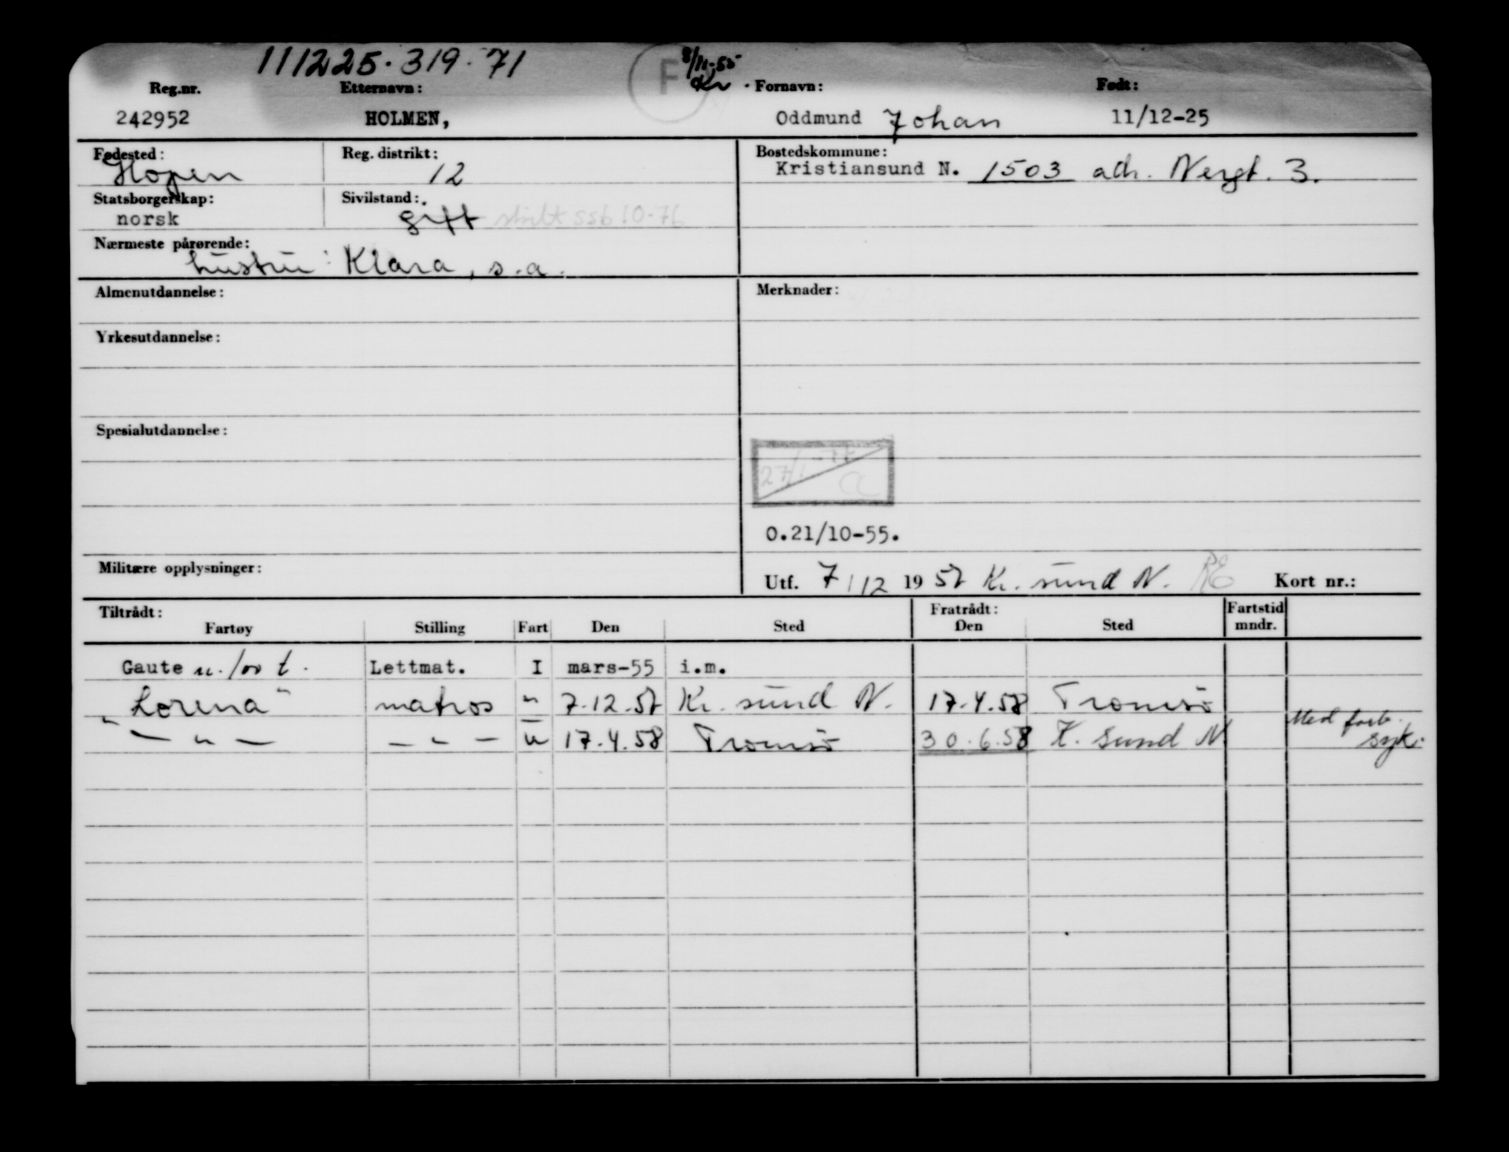 111225.319.71
F 8/11-55
Reg.nr. Etternavn: Fornavn: Født:
242952 HOLMEN, Oddmund Johan 11/12-25
Fødested: Reg. distrikt: Bostedskommune:
Hopen 12 Kristiansund N. 1503 adr. Nergt. 3.
Statsborgerskap: Sivilstand:
norsk gift skilt ssb 10-76
Nærmeste pårørende:
hustru: Klara, s.a.
Almenutdannelse: Merknader:
Yrkesutdannelse:
Spesialutdannelse:
0.21/10-55.
Militære opplysninger:
Utf. 7/12 1957 Kr. sund N. Kort nr.:
Tiltrådt: Fratrådt: Fartstid
Fartøy Stilling Fart Den Sted Den Sted mndr.
Gaute Lettmat. I mars-55 i.m.
"Lorena" matros " 7.12.57 Kr. sund N. 17.4.58 Tromsö
— " — — " — u 17.4.58 Tromsö 30.6.58 K. sund N Med forb. syk.